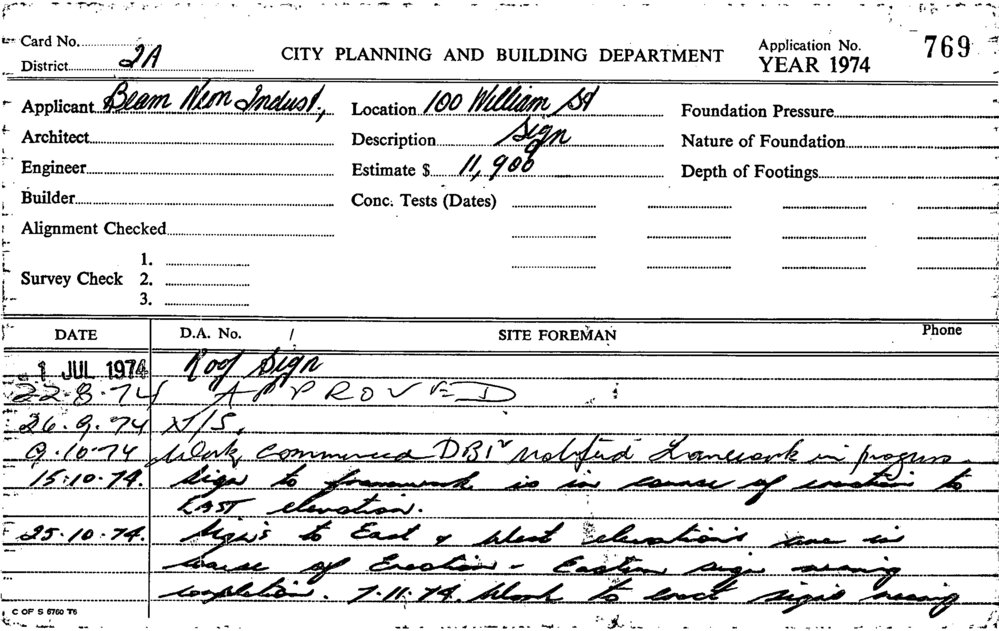 Card No.
District 2A
CITY PLANNING AND BUILDING DEPARTMENT
Application No. 769
YEAR 1974
Applicant Beam Neon Indust.,
Location 100 William St
Foundation Pressure
Architect
Description Sign
Nature of Foundation
Engineer
Estimate $ 11,900
Depth of Footings
Builder
Conc. Tests (Dates)
Alignment Checked
Survey Check 1.
2.
3.
DATE D.A. No. / SITE FOREMAN Phone
1 JUL 1974 Roof Sign
22-8-74 APPROVED
26.9.74 N/S.
9.10.74 Work commenced DBI notified Framework in progress.
15.10.74. Sign to framework is in course of erection to
EAST elevation.
25.10.74. Signs to East & West elevations are in
course of Erection - Eastern sign nearing
completion. 7.11.74. Work to erect signs nearing
C OF S 6760 T6